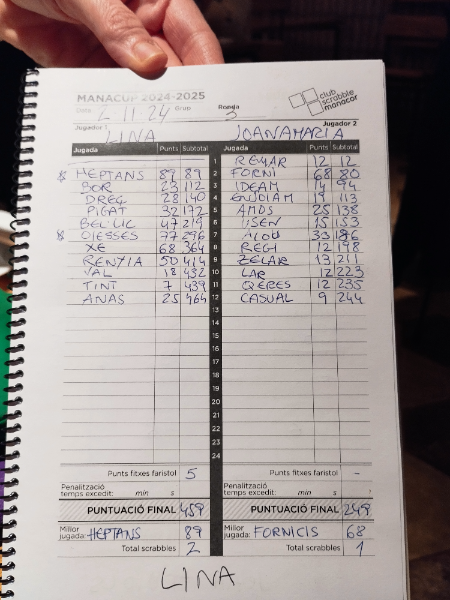 MANACUP 2024-2025
club scrabble manacor
Data 2-11-24 Grup Ronda 3
Jugador 1 LINA JOANAMARIA Jugador 2
Jugada Punts Subtotal Jugada Punts Subtotal
1 REMAR 12 12
HEPTANS 89 89 2 FORNI 68 80
SOR 23 112 3 IDEAM 14 94
DREG 28 140 4 19 113
PIGAT 32 172 5 25 138
BEL·LIC 47 219 6 USEN 15 153
77 296 7 33 186
XE 68 364 8 REGI 12 198
50 414 9 ZELAR 13 211
VAL 18 432 10 LAR 12 223
TINT 7 439 11 QERES 12 235
ANAS 25 464 12 CASUAL 9 244
13
14
15
16
17
18
19
20
21
22
23
24
Punts fitxes faristol 5 Punts fitxes faristol -
Penalització temps excedit: min s Penalització temps excedit: min s
PUNTUACIÓ FINAL 459 PUNTUACIÓ FINAL 249
Millor jugada: HEPTANS 89 Millor jugada: FORNICIS 68
Total scrabbles 2 Total scrabbles 1
LINA